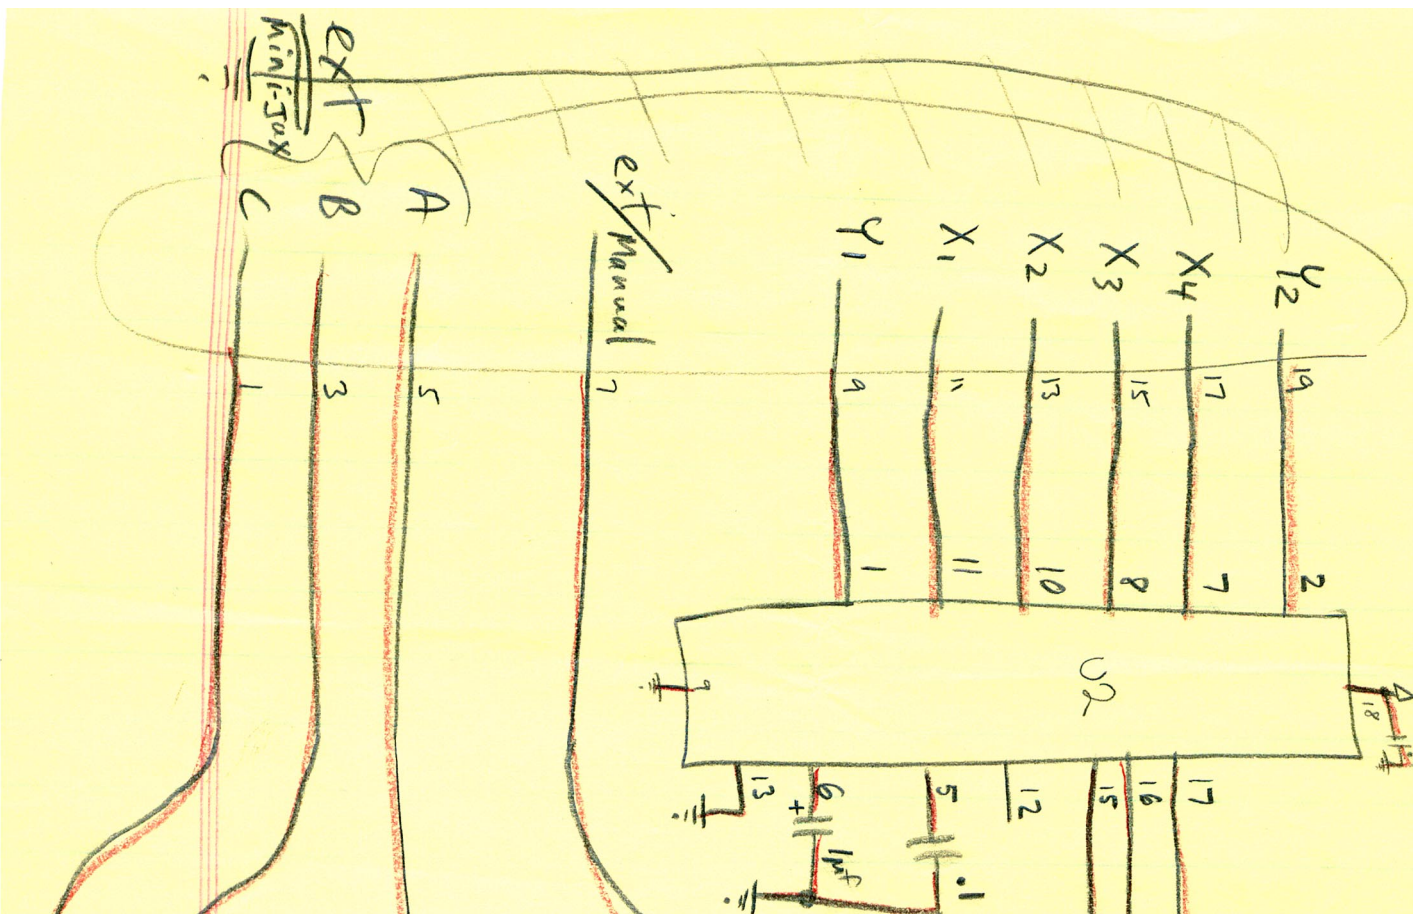 ext
mini-Jax
C
B
A
ext/Manual
Y1
X1
X2
X3
X4
Y2
1
3
5
7
9
11
13
15
17
19
1
11
10
8
7
2
U2
9
18
13
6
5
12
15
16
17
+
1µf
.1